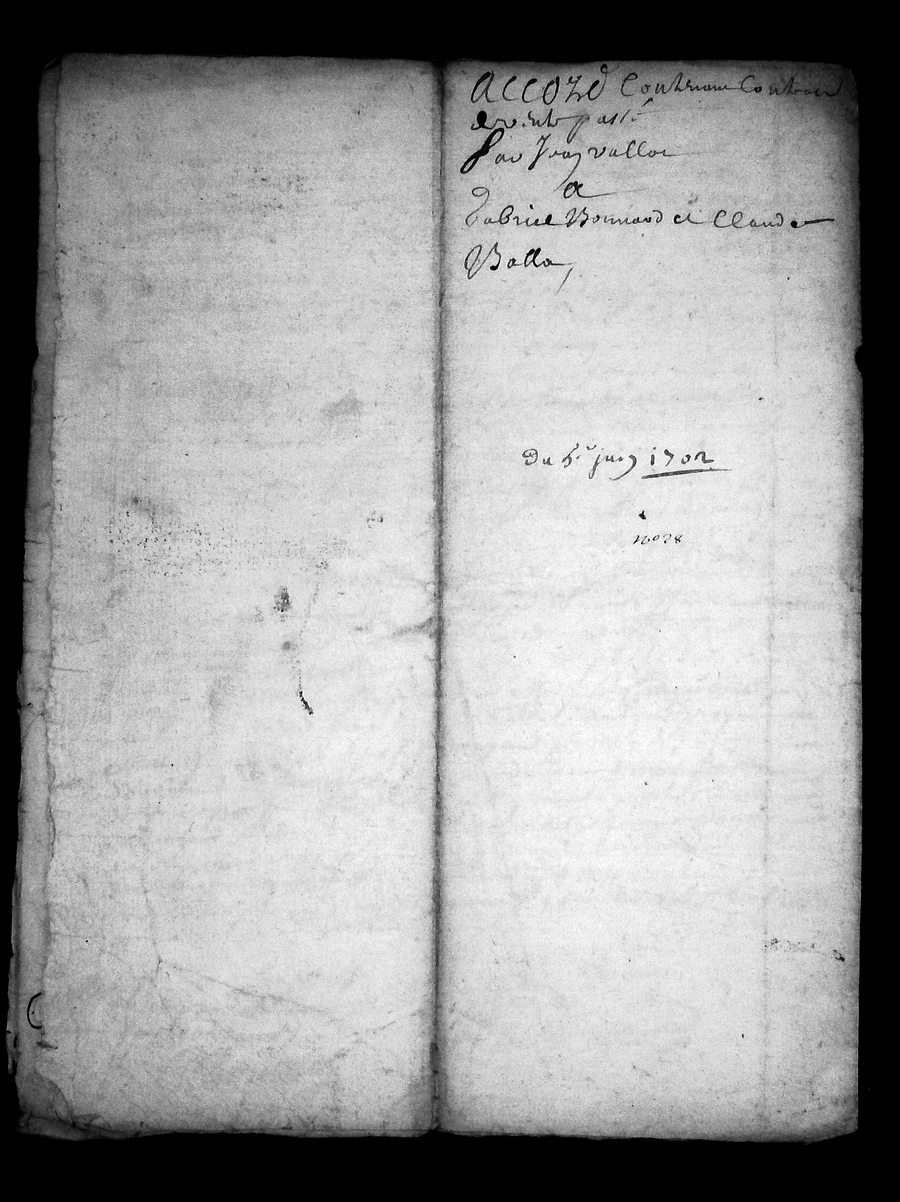 Accord Contenant Contract
de vente passé
Par Jean vallot
a
Fabrice Bonnard et Claude
Balla,
Du 5e juin 1702